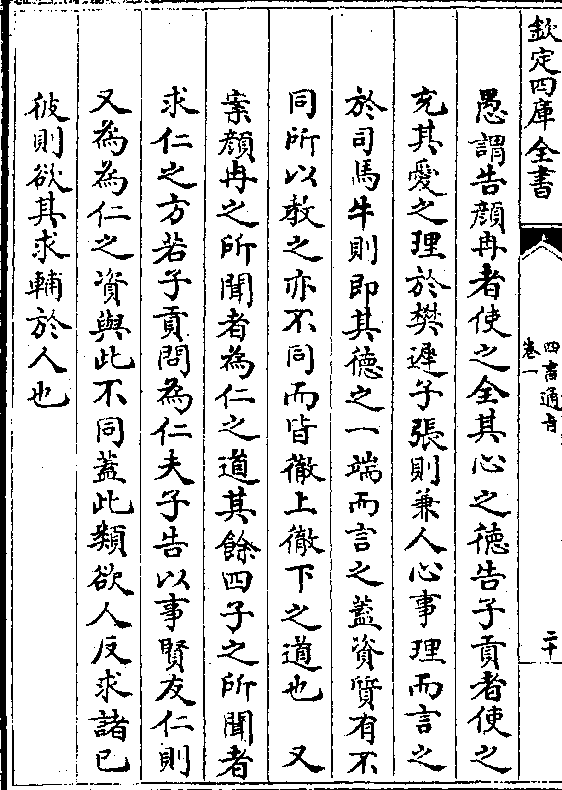 欽定四庫全書
四書通旨
卷一
二十
愚謂告顔冉者使之全其心之徳告子貢者使之
充其愛之理於樊遲子張則兼人心事理而言之
於司馬牛則即其徳之一端而言之蓋資質有不
同所以教之亦不同而皆徹上徹下之道也　又
案顔冉之所聞者為仁之道其餘四子之所聞者
求仁之方若子貢問為仁夫子告以事賢友仁則
又為為仁之資與此不同蓋此類欲人反求諸已
彼則欲其求輔於人也